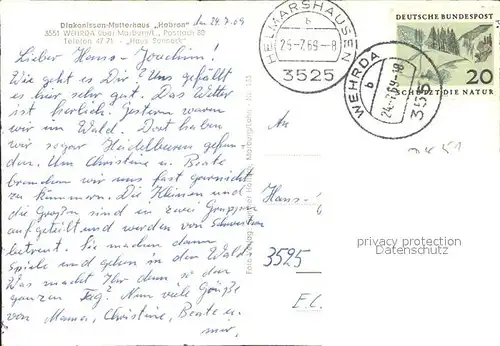 Diakonissen-Mutterhaus „Hebron"
3551 WEHRDA über Marburg/L., Postfach 80
Telefon 47 71 - "Haus Sonneck"
den 24.7.69
HELMARSHAUSEN
b
25-7.69-8
3525
WEHRDA
b
24.7.69-18
355
DEUTSCHE BUNDESPOST
20
SCHÜTZT DIE NATUR
Lieber Hans-Joachim!
Wie geht es Dir? Uns gefällt
es hier sehr gut. Das Wetter
ist herrlich. Gestern waren
wir im Wald. Dort haben
wir sogar Heidelbeeren gefun-
den. Um Christine u. Beate
brauchen wir uns fast garnicht
zu kümmern. Die Kleinen und
die Großen sind in zwei Gruppen
aufgeteilt und werden von Schwestern
betreut. Sie machen dann
Spiele und gehen in den Wald.
Was macht Ihr denn so den
ganzen Tag? Nun viele Grüße
von Mama, Christine, Beate u.
mir,
An
Hans-
3525
Foto Verlag
privacy protection
Datenschutz